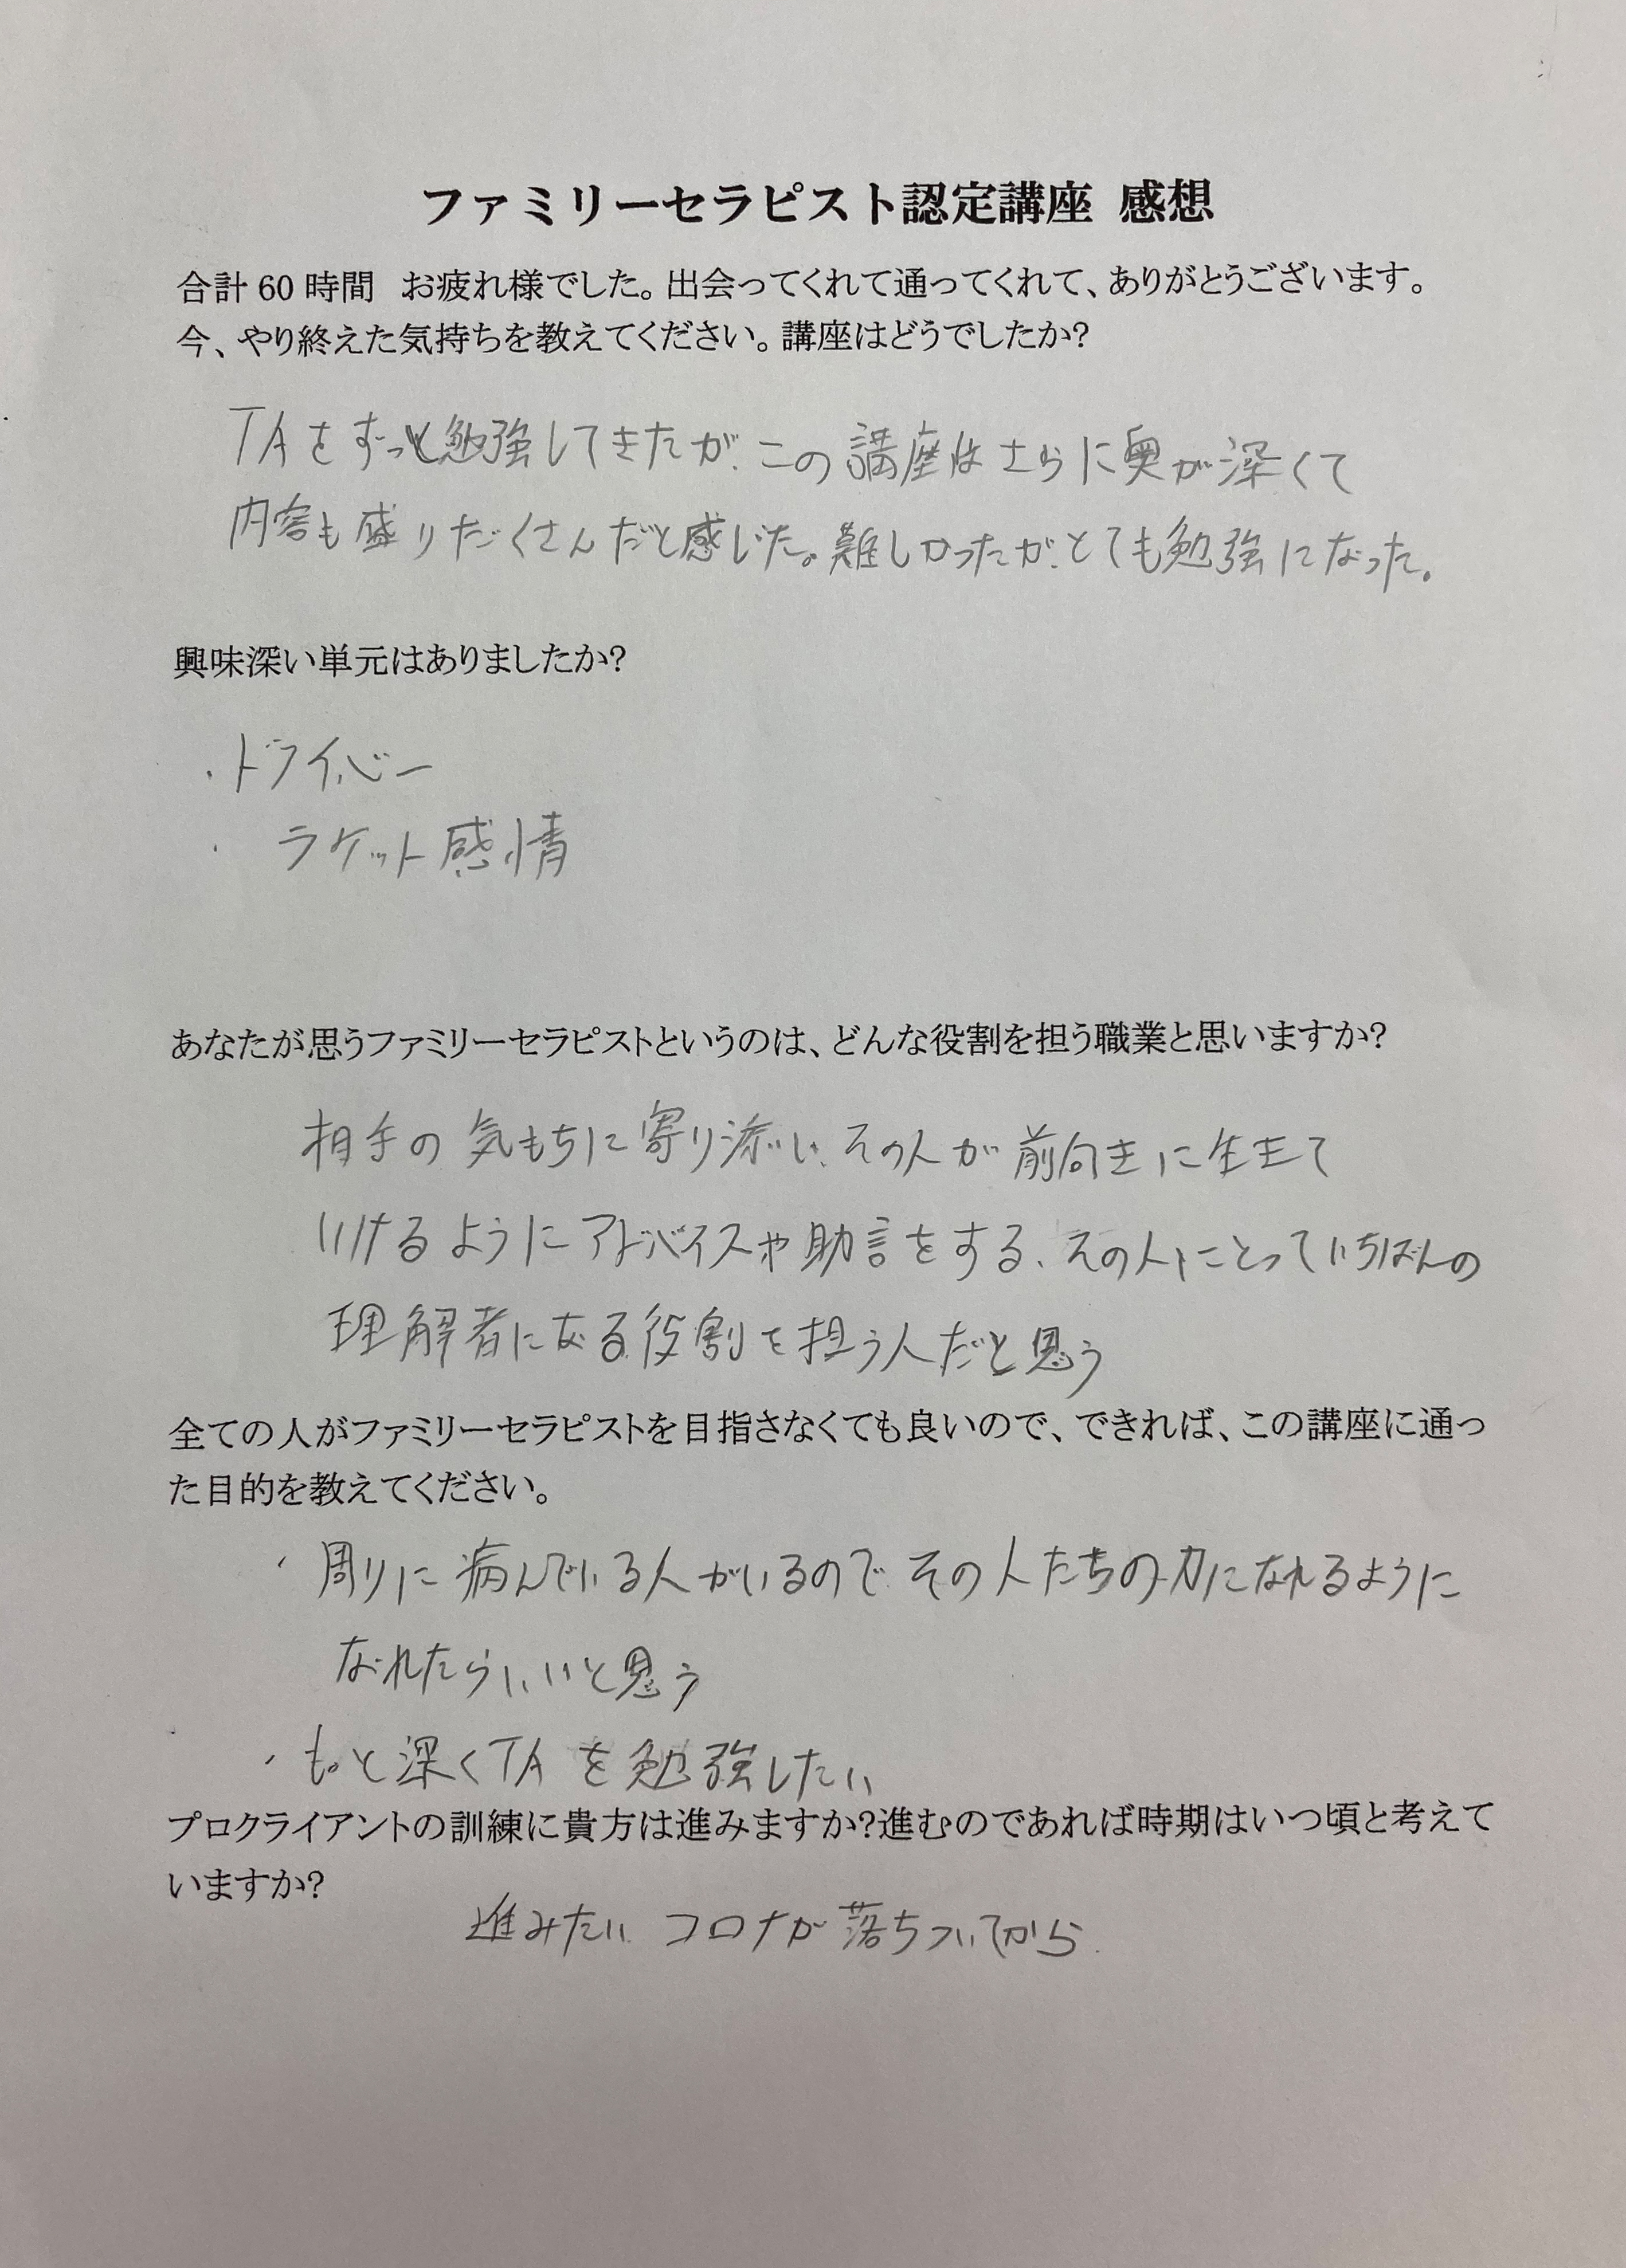 ファミリーセラピスト認定講座 感想
合計 60 時間　お疲れ様でした。出会ってくれて通ってくれて、ありがとうございます。
今、やり終えた気持ちを教えてください。講座はどうでしたか?
TAをずっと勉強してきたが、この講座はさらに奥が深くて
内容も盛りだくさんだと感じた。難しかったが、とても勉強になった。
興味深い単元はありましたか?
・ドライバー
・ ラケット感情
あなたが思うファミリーセラピストというのは、どんな役割を担う職業と思いますか?
相手の気もちに寄り添い、その人が前向きに生きて
いけるようにアドバイスや助言をする、その人にとっていちばんの
理解者になる役割を担う人だと思う
全ての人がファミリーセラピストを目指さなくても良いので、できれば、この講座に通っ
た目的を教えてください。
・ 周りに病んでいる人がいるので その人たちの力になれるように
なれたらいいと思う
・もっと深くTAを勉強したい
プロクライアントの訓練に貴方は進みますか?進むのであれば時期はいつ頃と考えて
いますか?
進みたい コロナが落ちついてから